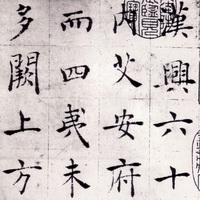 漢興六十
內艾安府
而四夷未
多闕上方